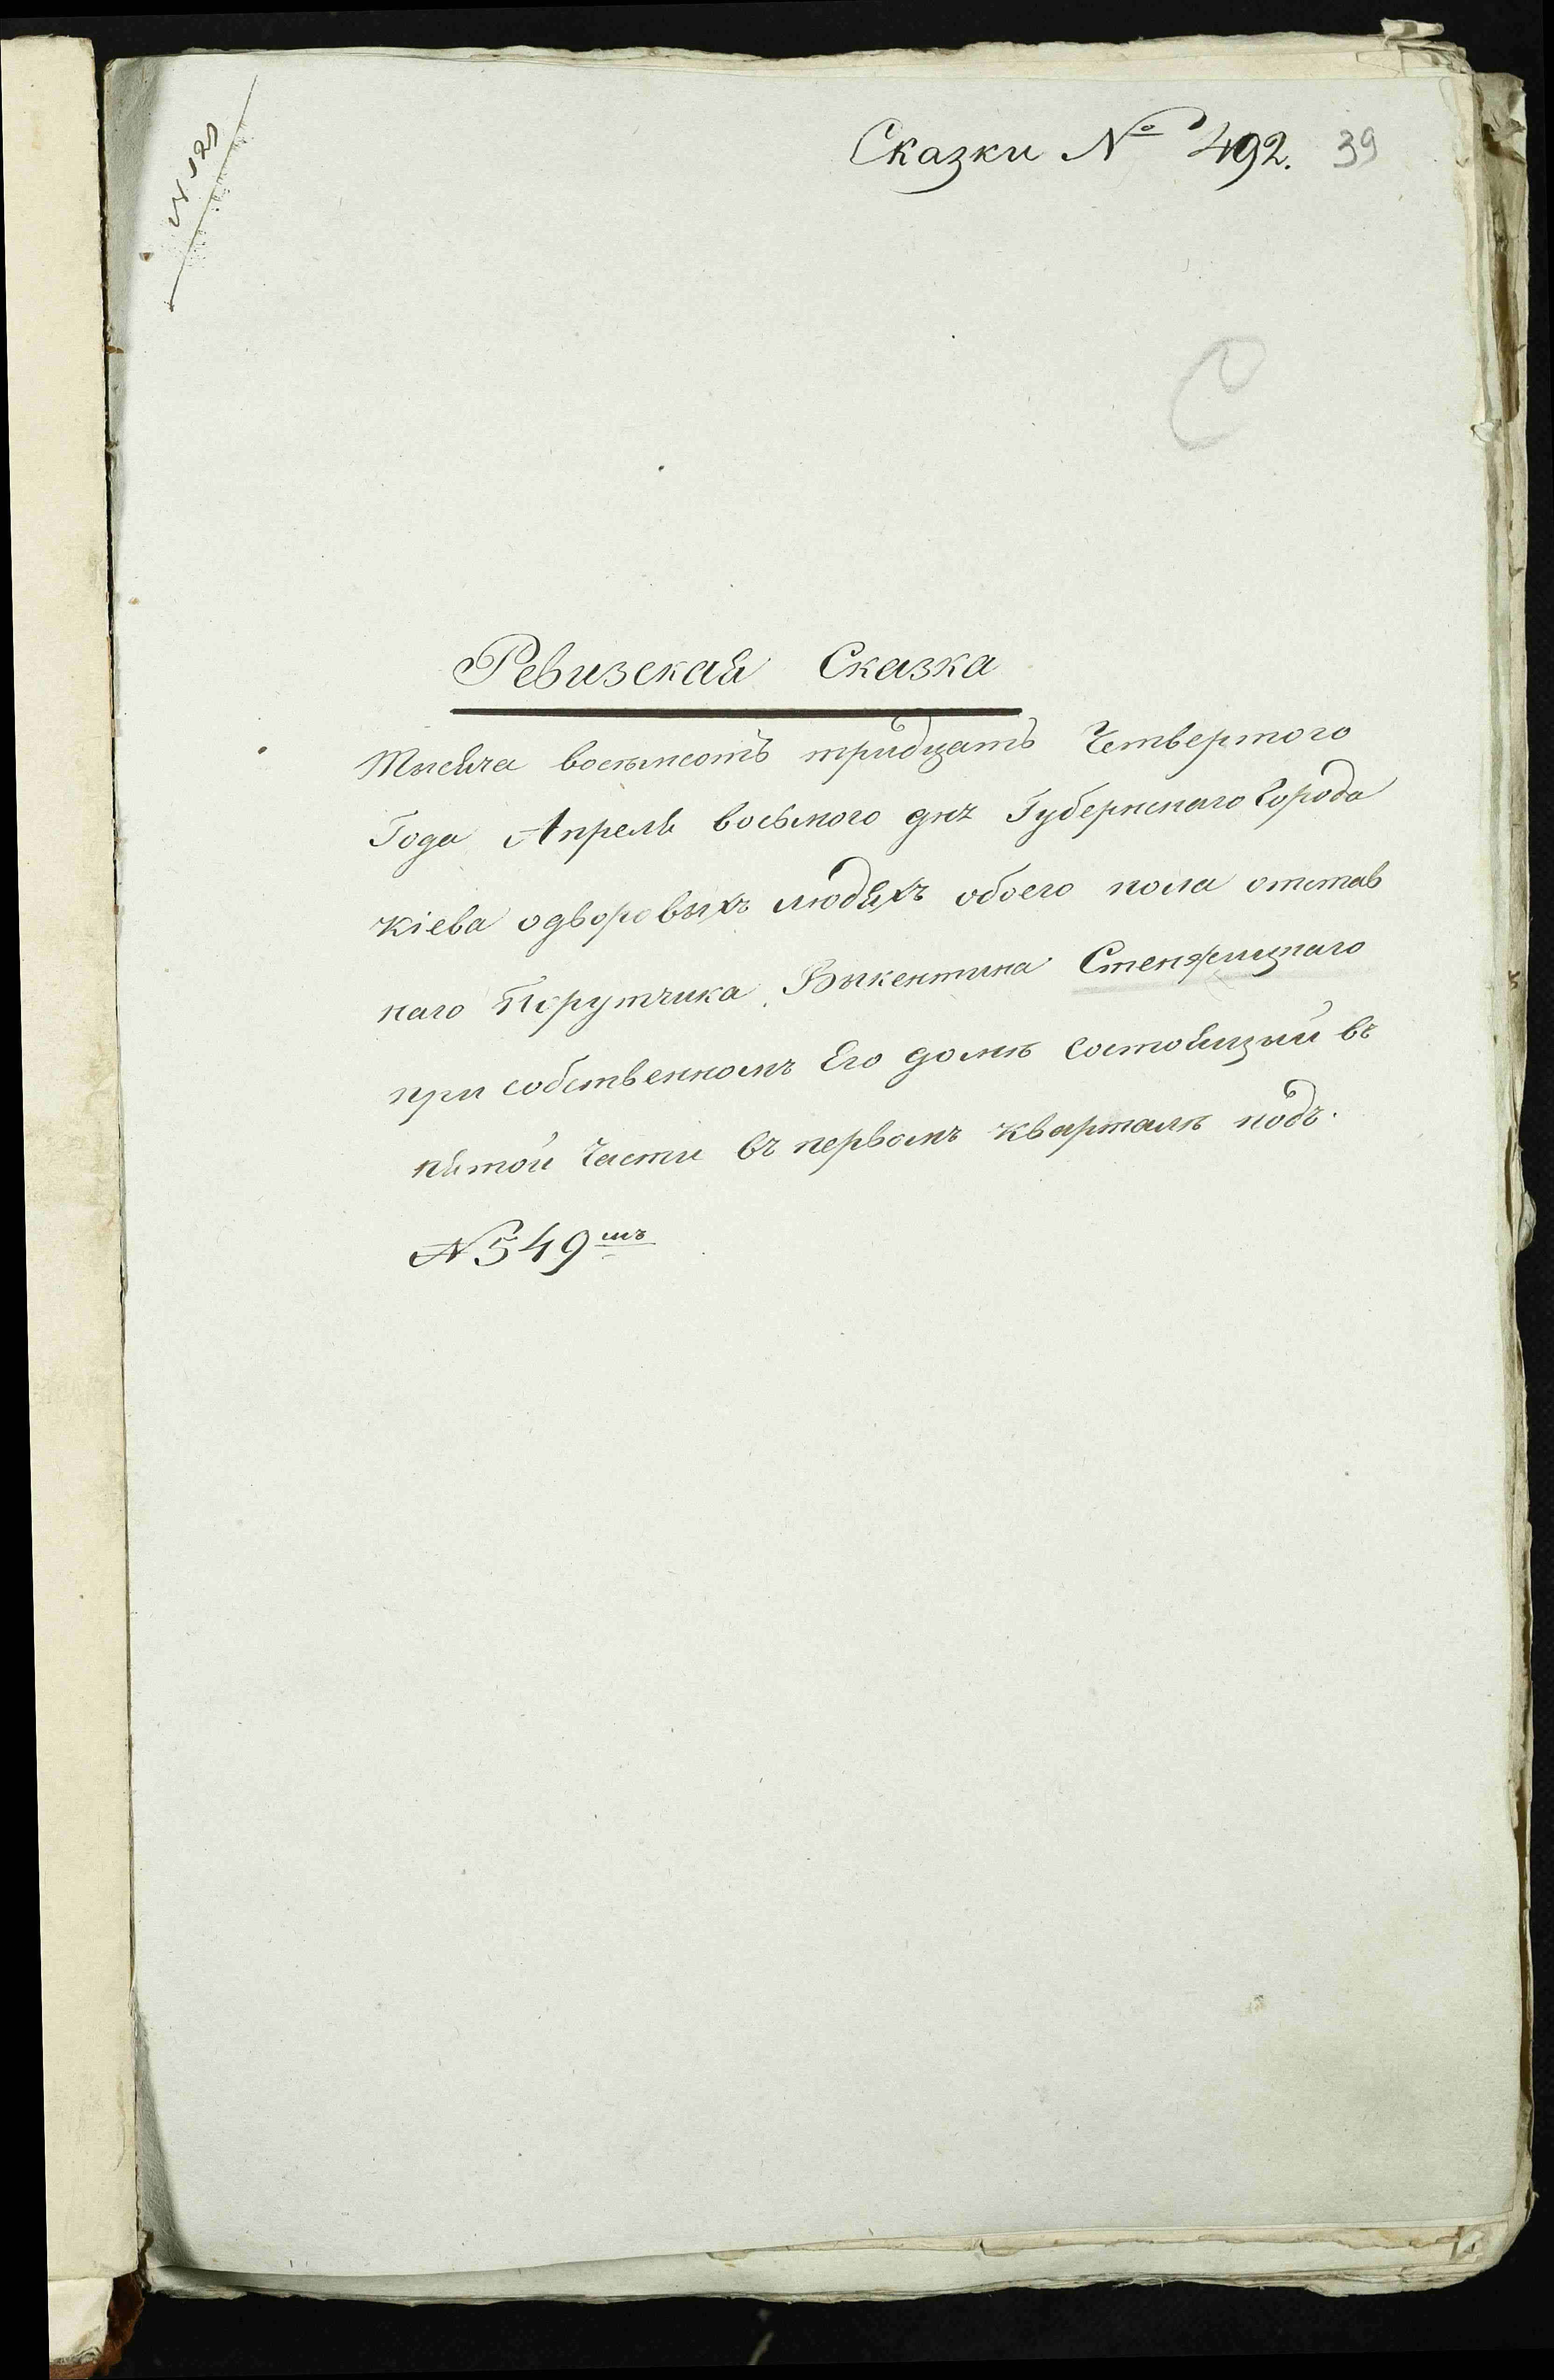 Сказки № 492. 39
С
Ревизская Сказка
Тысяча восьмсотъ тридцать Четвертого
Года Апреля восьмого дня Губернскаго Города
Кіева одворовыхъ людяхъ обоего пола отстав
наго Порутчика Выкентина Стенжицкаго
при собственномъ Его доме состоящый въ
пятой Части въ первомъ кварталѣ подъ
№ 549мъ